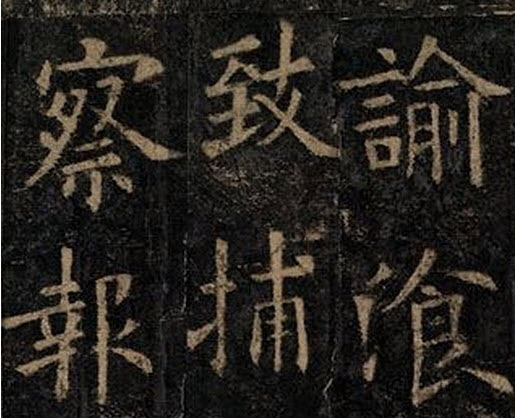 諭湌
致捕
察報